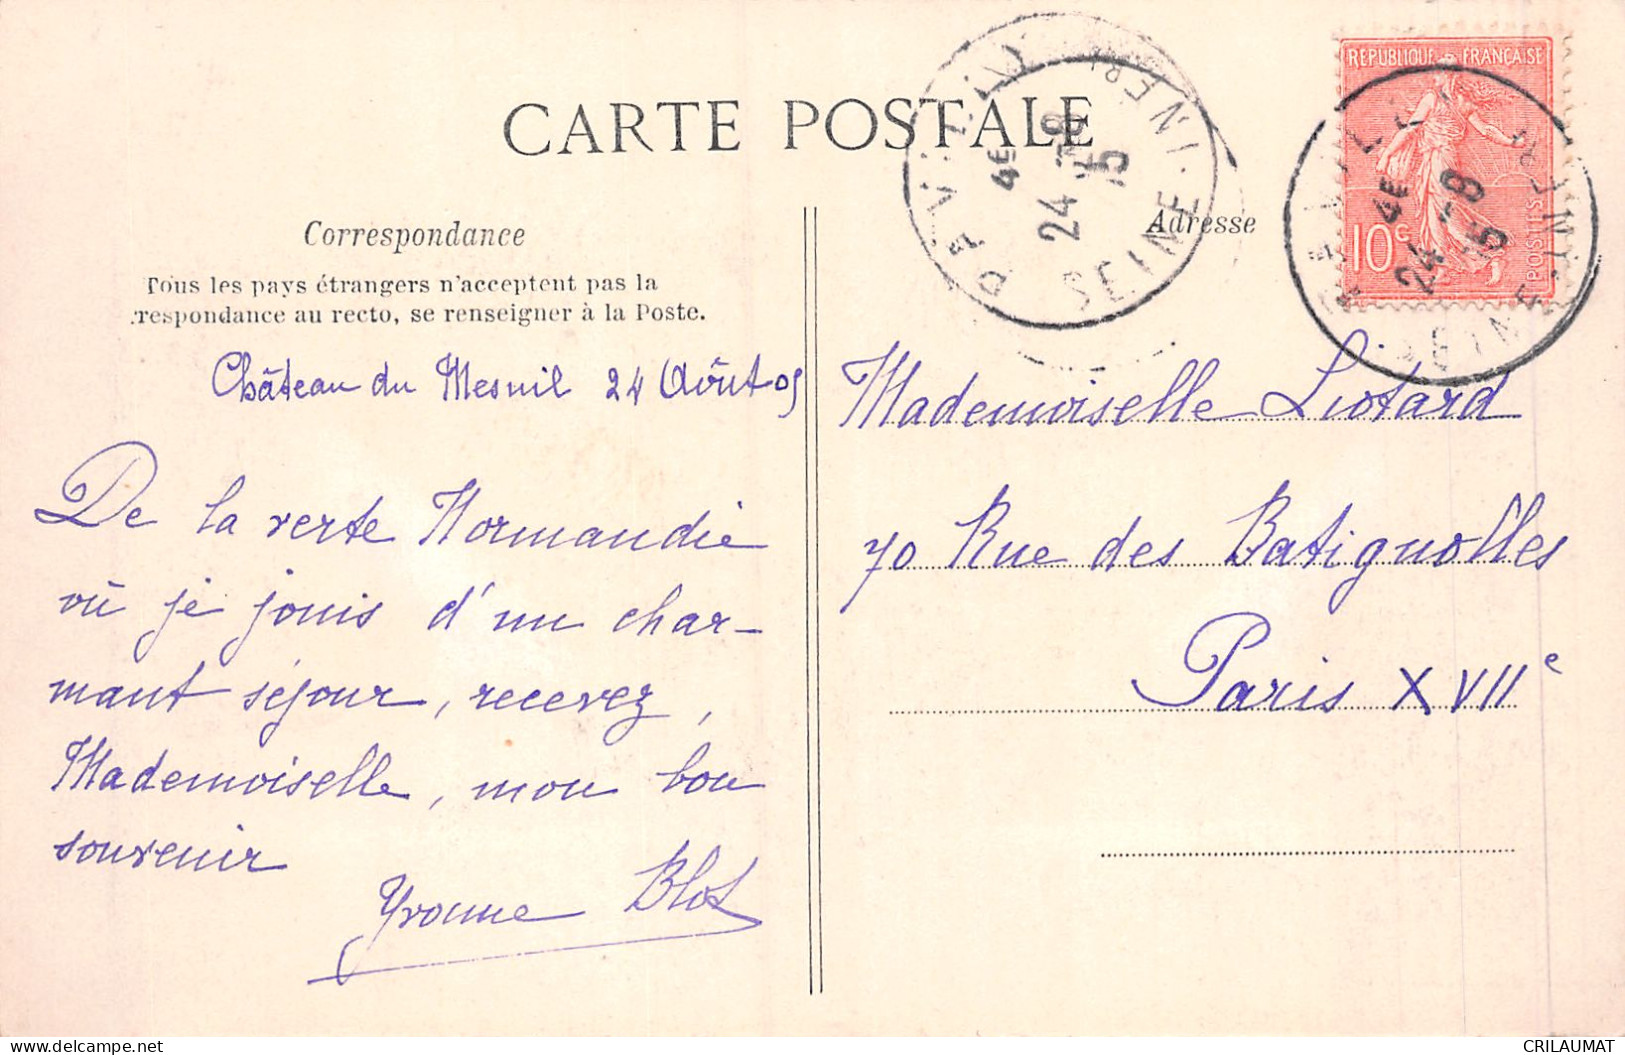 CARTE POSTALE
REPUBLIQUE FRANÇAISE
10c
POSTES
PAVILLY
4E
24 -8
05
SEINE INFERre
4E
24 -8
05
SEINE INFERre
Correspondance
Tous les pays étrangers n'acceptent pas la
respondance au recto, se renseigner à la Poste.
Château du Mesnil 24 Août 05
De la verte Normandie
où je jouis d'un char-
mant séjour, recevez,
Mademoiselle, mon bon
souvenir
Yvonne Blot
Adresse
Mademoiselle Liotard
70 Rue des Batignolles
Paris XVIIe
delcampe.net
CRILAUMAT